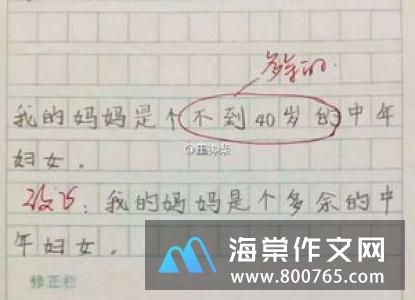 多余的.
我的妈妈是个不到40岁的中年
妇女.
改为:我的妈妈是个多余的中
年妇女.
修正栏
海棠作文网
www.800765.com